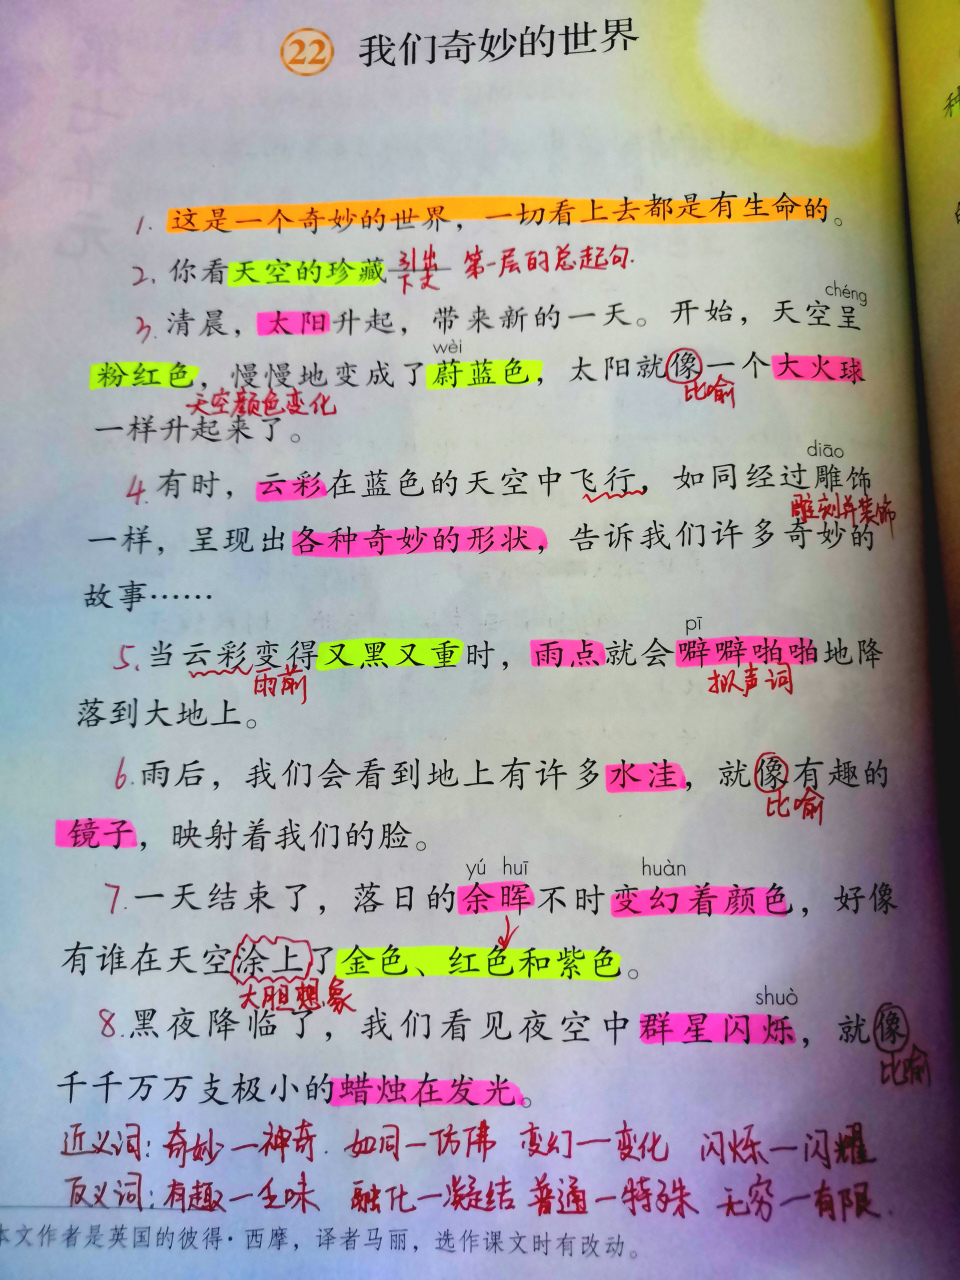 22 我们奇妙的世界
1. 这是一个奇妙的世界，一切看上去都是有生命的。
2. 你看天空的珍藏 引出下文 第一层的总起句.
chéng
3. 清晨，太阳升起，带来新的一天。开始，天空呈
wèi
粉红色，慢慢地变成了蔚蓝色，太阳就像一个大火球
天空颜色变化 比喻
一样升起来了。
diāo
4. 有时，云彩在蓝色的天空中飞行，如同经过雕饰
雕刻并装饰
一样，呈现出各种奇妙的形状，告诉我们许多奇妙的
故事……
pī
5. 当云彩变得又黑又重时，雨点就会噼噼啪啪地降
雨前 拟声词
落到大地上。
6. 雨后，我们会看到地上有许多水洼，就像有趣的
比喻
镜子，映射着我们的脸。
yú huī huàn
7. 一天结束了，落日的余晖不时变幻着颜色，好像
有谁在天空涂上了金色、红色和紫色。
大胆想象
shuò
8. 黑夜降临了，我们看见夜空中群星闪烁，就像
比喻
千千万万支极小的蜡烛在发光。
近义词：奇妙—神奇. 如同—仿佛 变幻—变化 闪烁—闪耀
反义词：有趣—乏味 融化—凝结 普通—特殊 无穷—有限.
本文作者是英国的彼得·西摩，译者马丽，选作课文时有改动。